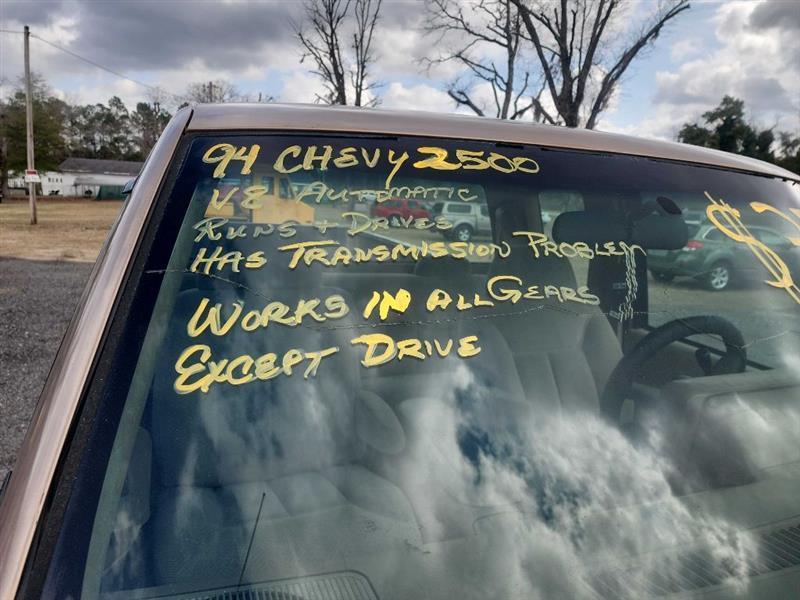 94 CHEVY 2500
V8 AUTOMATIC
RUNS + DRIVES
HAS TRANSMISSION PROBLEM
WORKS IN ALL GEARS
EXCEPT DRIVE
$2